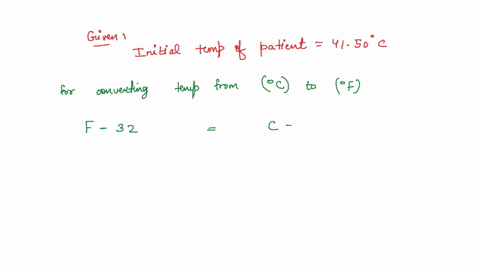 Given:
Initial temp of patient = 41.50°C
for converting temp from (°C) to (°F)
F - 32 = C -